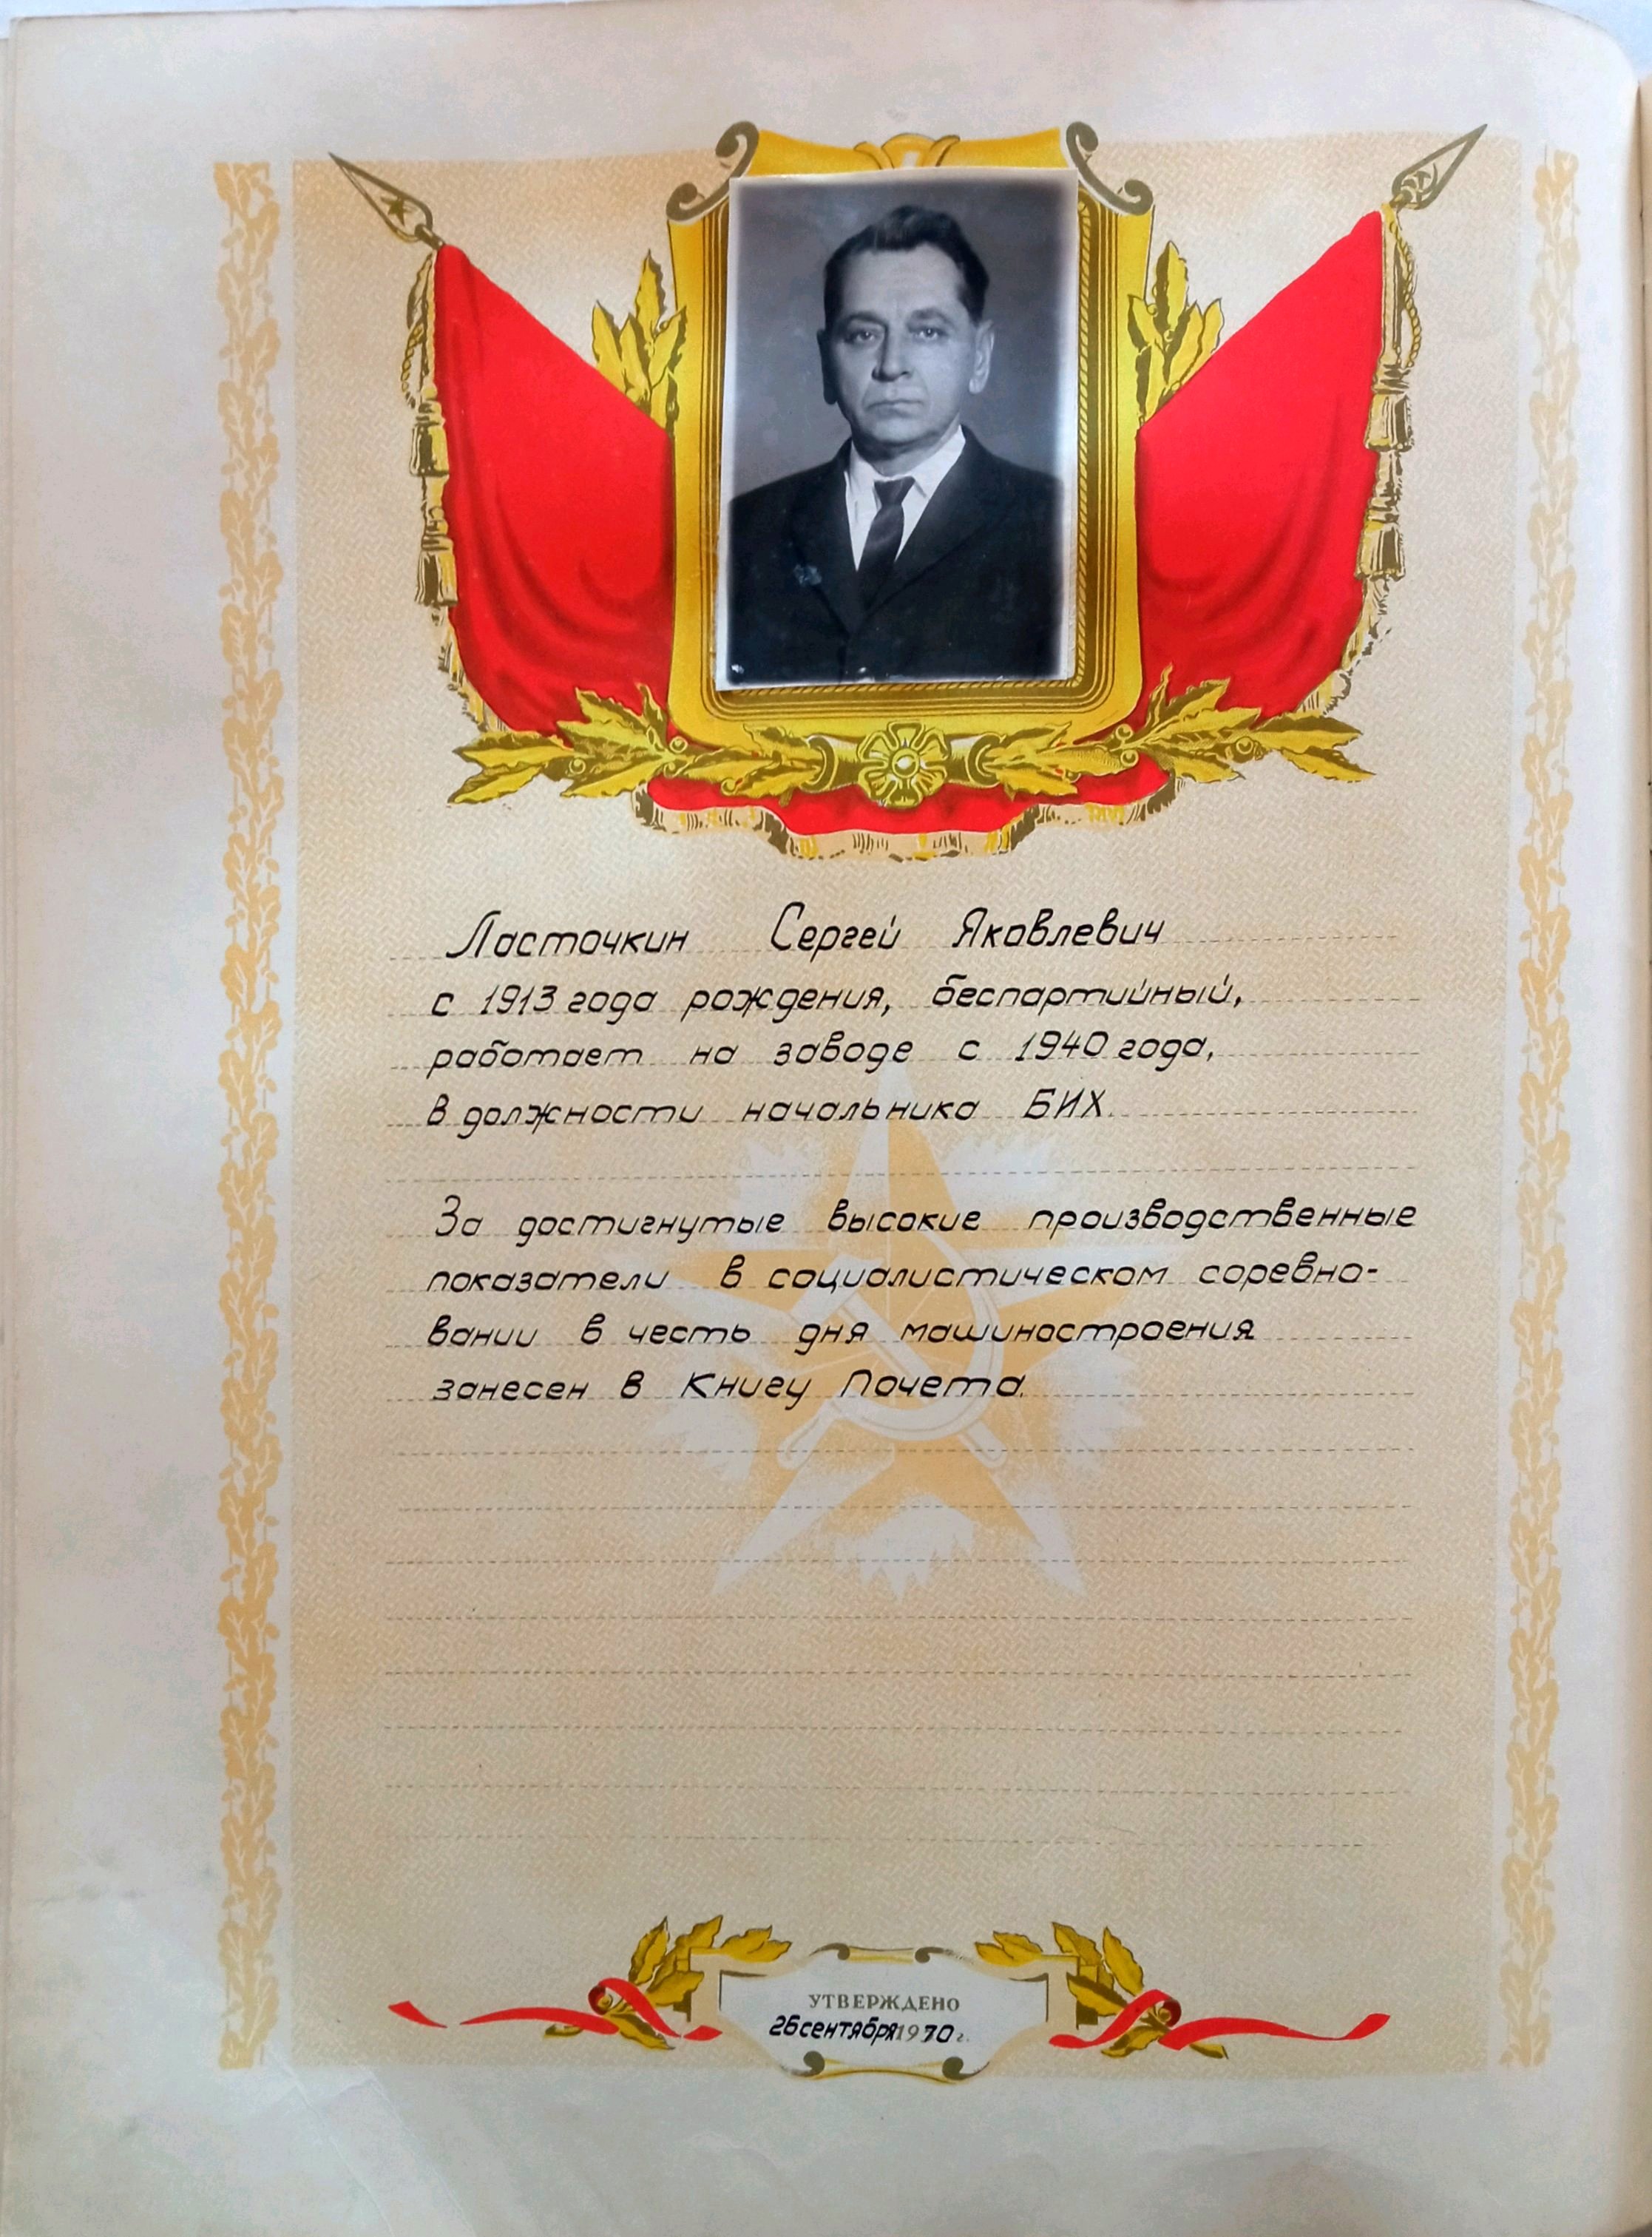 Ласточкин Сергей Яковлевич
с 1913 года рождения, беспартийный,
работает на заводе с 1940 года,
в должности начальника БИХ.
За достигнутые высокие производственные
показатели в социалистическом соревно-
вании в честь дня машиностроения
занесен в Книгу Почета.
УТВЕРЖДЕНО
26 сентября 1970 г.